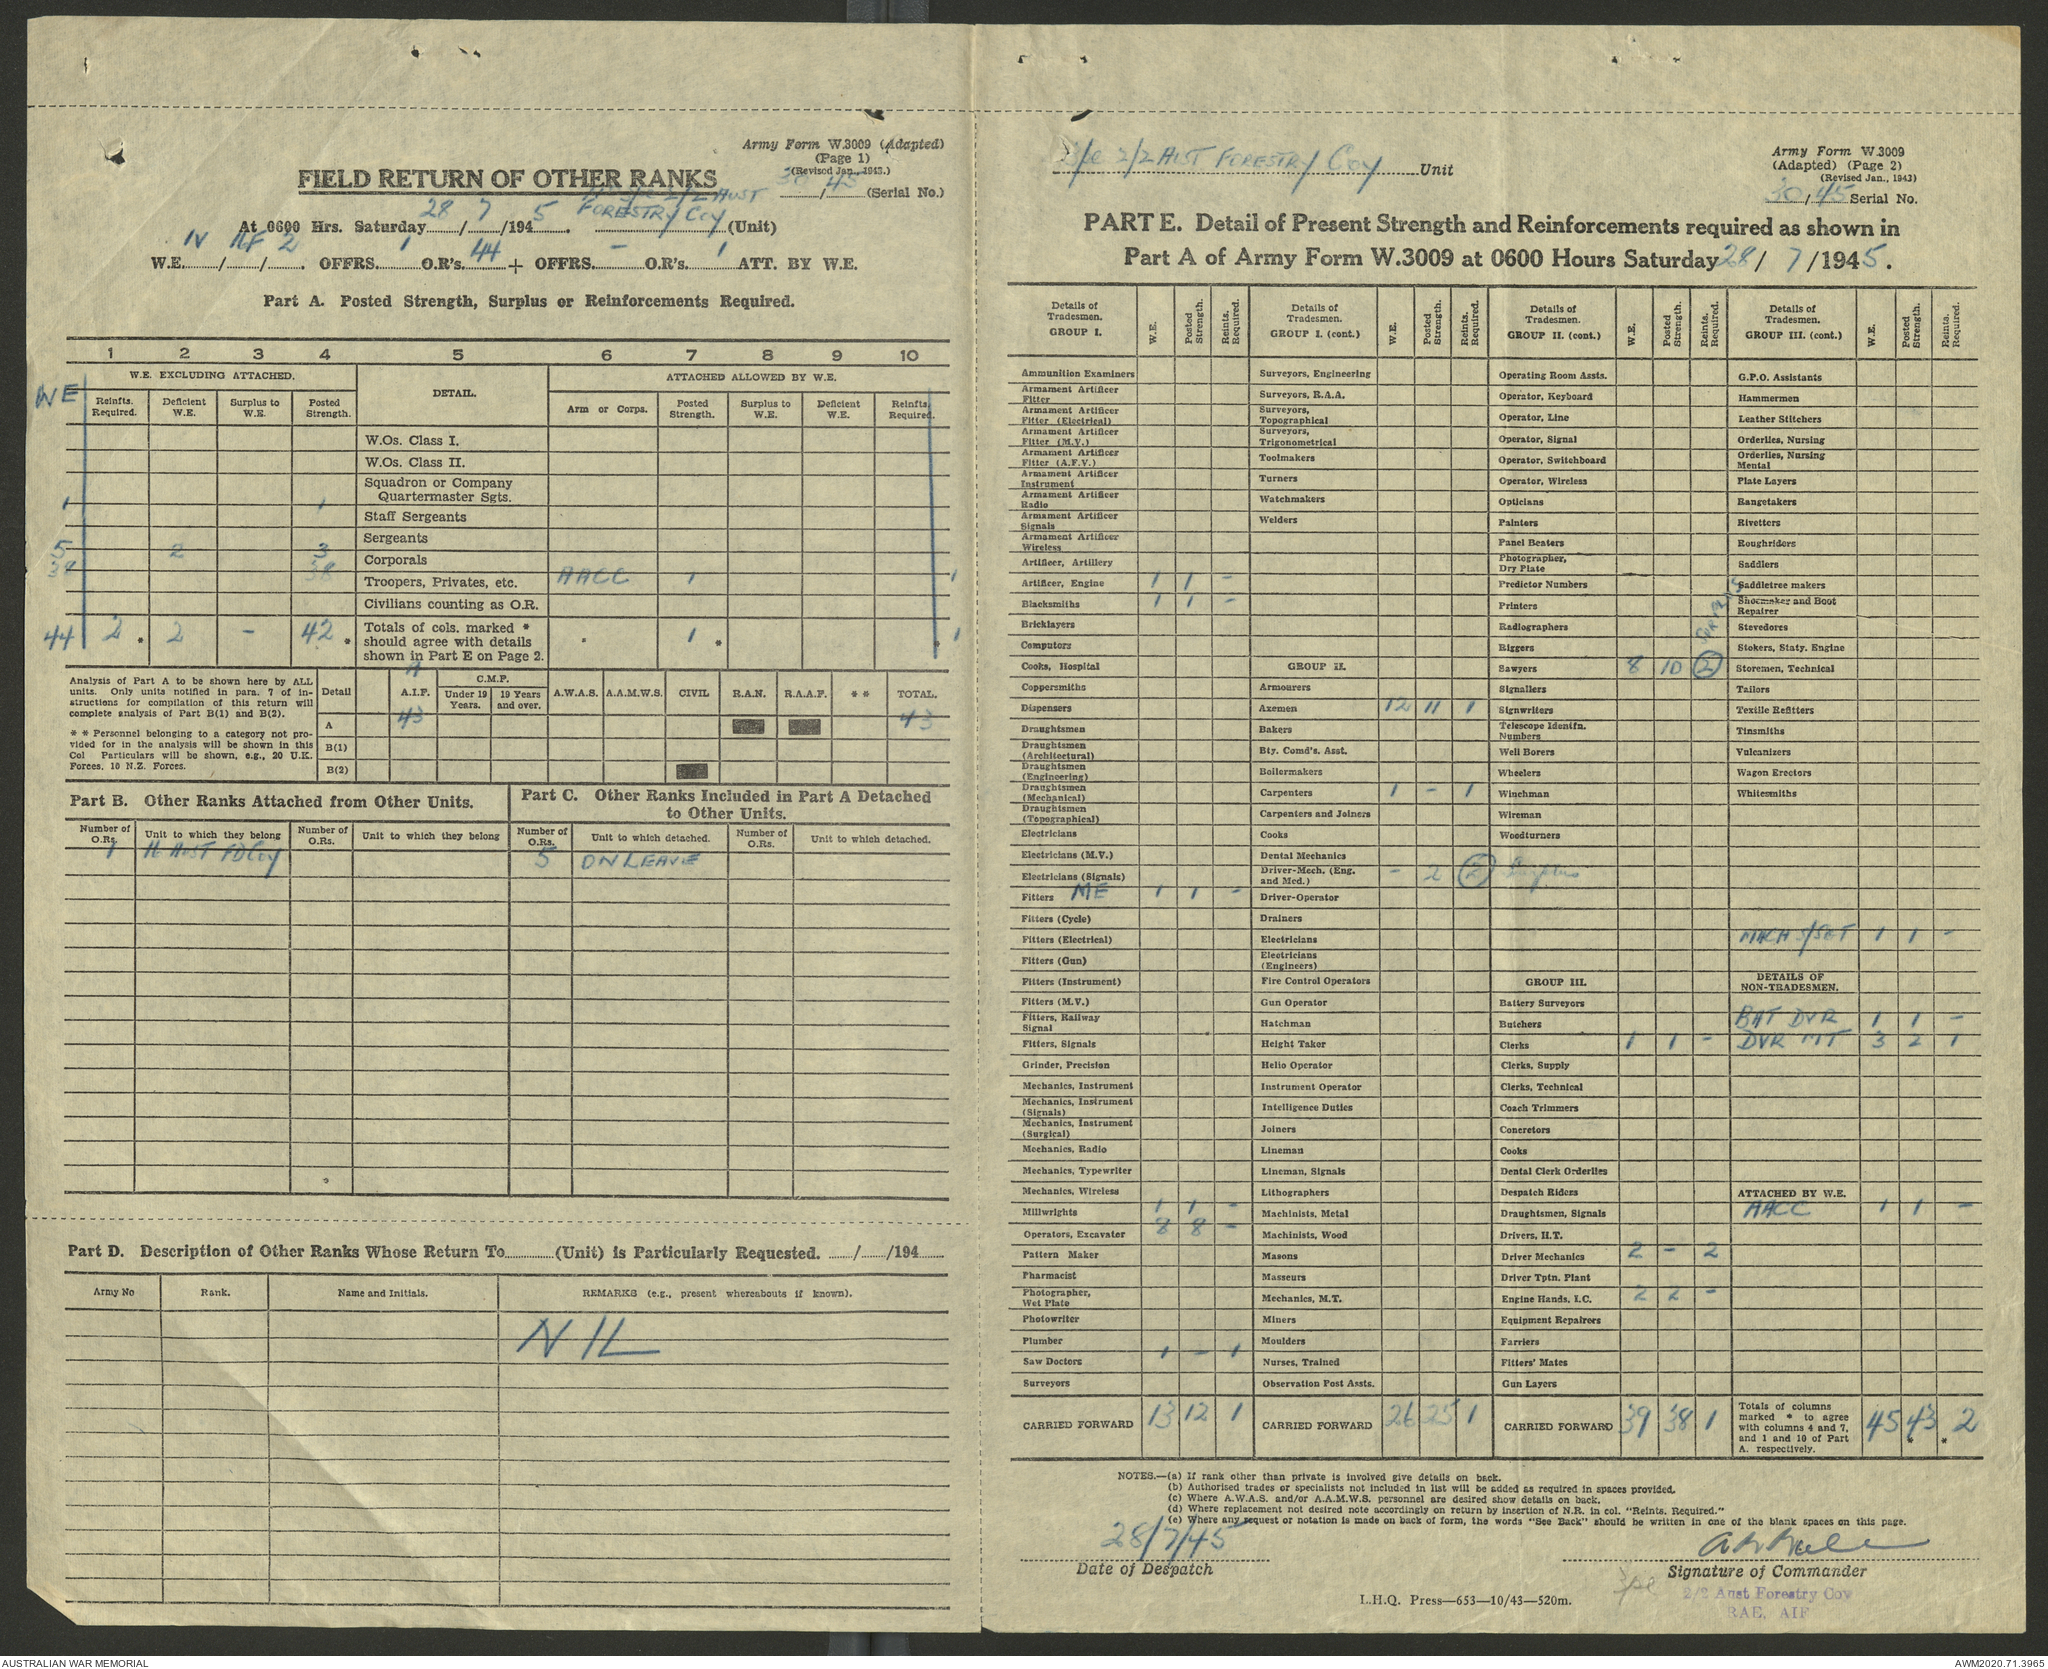 Army Form W.3009 (Adapted)
(Page 1)
(Revised Jan., 1943.)
FIELD RETURN OF OTHER RANKS
30/45 (Serial No.)
2/2 AUST
At 0600 Hrs. Saturday 28/7/1945. FORESTRY Coy (Unit)
W.E. IV/ /2. OFFRS. 1 O.R's. 44 + OFFRS. - O.R's. 1 ATT. BY W.E.
Part A. Posted Strength, Surplus or Reinforcements Required.
1 2 3 4 5 6 7 8 9 10
W.E. EXCLUDING ATTACHED. DETAIL. ATTACHED ALLOWED BY W.E.
WE Reinfts. Required. Deficient W.E. Surplus to W.E. Posted Strength. Arm or Corps. Posted Strength. Surplus to W.E. Deficient W.E. Reinfts. Required.
W.Os. Class I.
W.Os. Class II.
Squadron or Company
Quartermaster Sgts.
1 1 Staff Sergeants
Sergeants
5 2 3 Corporals
38 38 Troopers, Privates, etc. AACC 1 1
Civilians counting as O.R.
44 2 * 2 - 42 * Totals of cols. marked * should agree with details shown in Part E on Page 2. * 1 * * 1
Analysis of Part A to be shown here by ALL units. Only units notified in para. 7 of instructions for compilation of this return will complete analysis of Part B(1) and B(2).
* * Personnel belonging to a category not provided for in the analysis will be shown in this Col Particulars will be shown, e.g., 20 U.K. Forces, 10 N.Z. Forces.
Detail A.I.F. C.M.F. Under 19 Years. 19 Years and over. A.W.A.S. A.A.M.W.S. CIVIL R.A.N. R.A.A.F. * * TOTAL.
A 43 43
B(1)
B(2)
Part B. Other Ranks Attached from Other Units.
Part C. Other Ranks Included in Part A Detached to Other Units.
Number of O.Rs. Unit to which they belong Number of O.Rs. Unit to which they belong Number of O.Rs. Unit to which detached. Number of O.Rs. Unit to which detached.
1 16 AUST FD Coy 5 ON LEAVE
Part D. Description of Other Ranks Whose Return To............(Unit) is Particularly Requested. ....../....../194......
Army No Rank. Name and Initials. REMARKS (e.g., present whereabouts if known).
NIL
2/2 AUST FORESTRY Coy Unit
Army Form W.3009
(Adapted) (Page 2)
(Revised Jan., 1943)
30/45 Serial No.
PART E. Detail of Present Strength and Reinforcements required as shown in
Part A of Army Form W.3009 at 0600 Hours Saturday 28/7/1945.
Details of Tradesmen. GROUP I. W.E. Posted Strength. Reints. Required.
Ammunition Examiners
Armament Artificer Fitter
Armament Artificer Fitter (Electrical)
Armament Artificer Fitter (M.V.)
Armament Artificer Fitter (A.F.V.)
Armament Artificer Instrument
Armament Artificer Radio
Armament Artificer Signals
Armament Artificer Wireless
Artificer, Artillery
Artificer, Engine 1 1 -
Blacksmiths 1 1 -
Bricklayers
Computors
Cooks, Hospital
Coppersmiths
Dispensers
Draughtsmen
Draughtsmen (Architectural)
Draughtsmen (Engineering)
Draughtsmen (Mechanical)
Draughtsmen (Topographical)
Electricians
Electricians (M.V.)
Electricians (Signals)
Fitters ME 1 1 -
Fitters (Cycle)
Fitters (Electrical)
Fitters (Gun)
Fitters (Instrument)
Fitters (M.V.)
Fitters, Railway Signal
Fitters, Signals
Grinder, Precision
Mechanics, Instrument
Mechanics, Instrument (Signals)
Mechanics, Instrument (Surgical)
Mechanics, Radio
Mechanics, Typewriter
Mechanics, Wireless
Millwrights 1 1 -
Operators, Excavator 8 8 -
Pattern Maker
Pharmacist
Photographer, Wet Plate
Photowriter
Plumber
Saw Doctors 1 - 1
Surveyors
CARRIED FORWARD 13 12 1
Details of Tradesmen. GROUP I. (cont.) W.E. Posted Strength. Reints. Required.
Surveyors, Engineering
Surveyors, R.A.A.
Surveyors, Topographical
Surveyors, Trigonometrical
Toolmakers
Turners
Watchmakers
Welders
GROUP II.
Armourers
Axemen 12 11 1
Bakers
Bty. Comd's. Asst.
Boilermakers
Carpenters 1 - 1
Carpenters and Joiners
Cooks
Dental Mechanics
Driver-Mech. (Eng. and Med.) - 2 2 Surplus
Driver-Operator
Drainers
Electricians
Electricians (Engineers)
Fire Control Operators
Gun Operator
Hatchman
Height Taker
Helio Operator
Instrument Operator
Intelligence Duties
Joiners
Lineman
Lineman, Signals
Lithographers
Machinists, Metal
Machinists, Wood
Masons
Masseurs
Mechanics, M.T.
Miners
Moulders
Nurses, Trained
Observation Post Assts.
CARRIED FORWARD 26 25 1
Details of Tradesmen. GROUP II. (cont.) W.E. Posted Strength. Reints. Required.
Operating Room Assts.
Operator, Keyboard
Operator, Line
Operator, Signal
Operator, Switchboard
Operator, Wireless
Opticians
Painters
Panel Beaters
Photographer, Dry Plate
Predictor Numbers
Printers
Radiographers
Riggers
Sawyers 8 10 2 Surplus
Signallers
Signwriters
Telescope Identfn. Numbers
Well Borers
Wheelers
Winchman
Wireman
Woodturners
GROUP III.
Battery Surveyors
Butchers
Clerks 1 1 -
Clerks, Supply
Clerks, Technical
Coach Trimmers
Concretors
Cooks
Dental Clerk Orderlies
Despatch Riders
Draughtsmen, Signals
Drivers, H.T.
Driver Mechanics 2 - 2
Driver Tptn. Plant
Engine Hands, I.C. 2 2 -
Equipment Repairers
Farriers
Fitters' Mates
Gun Layers
CARRIED FORWARD 39 38 1
Details of Tradesmen. GROUP III. (cont.) W.E. Posted Strength. Reints. Required.
G.P.O. Assistants
Hammermen
Leather Stitchers
Orderlies, Nursing
Orderlies, Nursing Mental
Plate Layers
Rangetakers
Rivetters
Roughriders
Saddlers
Saddletree makers
Shoemaker and Boot Repairer
Stevedores
Stokers, Staty. Engine
Storemen, Technical
Tailors
Textile Refitters
Tinsmiths
Vulcanizers
Wagon Erectors
Whitesmiths
MACH S/SET 1 1 -
DETAILS OF NON-TRADESMEN.
BAT DVR 1 1 -
DVR MT 3 2 1
ATTACHED BY W.E.
AACC 1 1 -
Totals of columns marked * to agree with columns 4 and 7, and 1 and 10 of Part A. respectively. 45 43 * * 2
NOTES.—(a) If rank other than private is involved give details on back.
(b) Authorised trades or specialists not included in list will be added as required in spaces provided.
(c) Where A.W.A.S. and/or A.A.M.W.S. personnel are desired show details on back.
(d) Where replacement not desired note accordingly on return by insertion of N.R. in col. "Reints. Required."
(e) Where any request or notation is made on back of form, the words "See Back" should be written in one of the blank spaces on this page.
28/7/45
Date of Despatch
Signature of Commander
2/2 Aust Forestry Coy
RAE, AIF
L.H.Q. Press—653—10/43—520m.
AUSTRALIAN WAR MEMORIAL
AWM2020.71.3965